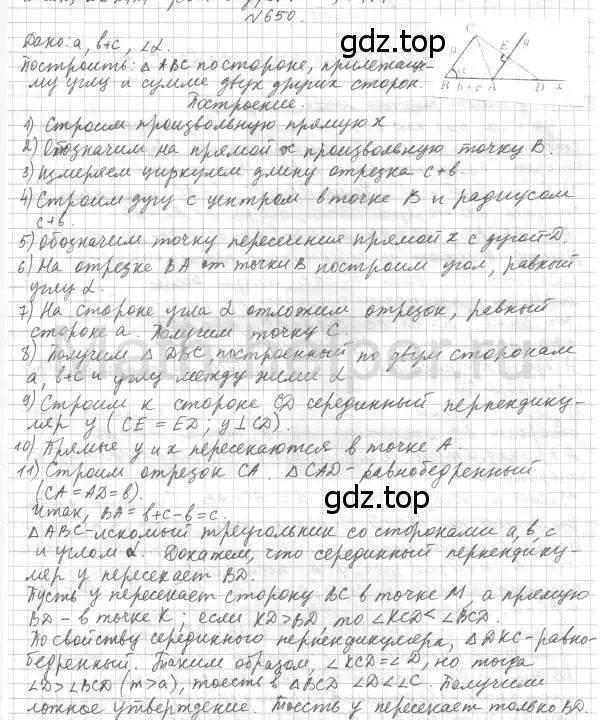 №650.
Дано: a, b+c, ∠α.
Построить: △ABC постороне, прилежаще-
му углу и сумме двух других сторон.
Построение.
1) Строим произвольную прямую x.
2) Обозначим на прямой x произвольную точку B.
3) Измеряем циркулем длину отрезка c+b.
4) Строим дугу с центром в точке B и радиусом
c+b.
5) Обозначим точку пересечения прямой x с дугой-D.
6) На отрезке BA от точки B построим угол, равный
углу α.
7) На стороне угла α отложим отрезок, равный
стороне a. Получим точку C.
8) Получим △DBC, построенный по двум сторонам
a, b+c и углу между ними α.
9) Строим к стороне CD серединный перпендику-
ляр y (CE = ED; y⊥CD).
10) Прямые y и x пересекаются в точке A.
11) Строим отрезок CA. △CAD-равнобедренный
(CA=AD=b).
Итак, BA = b+c-b=c.
△ABC-искомый треугольник со сторонами a, b, c
и углом α. Докажем, что серединный перпендику-
ляр y пересекает BD.
Пусть y пересекает сторону BC в точке M, а прямую
BD - в точке K; если KD>BD, то ∠KCD<∠BCD.
По свойству серединного перпендикуляра, △DKC-равно-
бедренный. Таким образом, ∠KCD=∠D, но тогда
∠D>∠BCD (m>a), тоесть в △BCD ∠D<∠C. Получили
ложное утверждение. Тоесть y пересекает только BD.
C
a
E
y
B
α
b+c
A
D
x
gdz.top
gdz.top
gdz.top